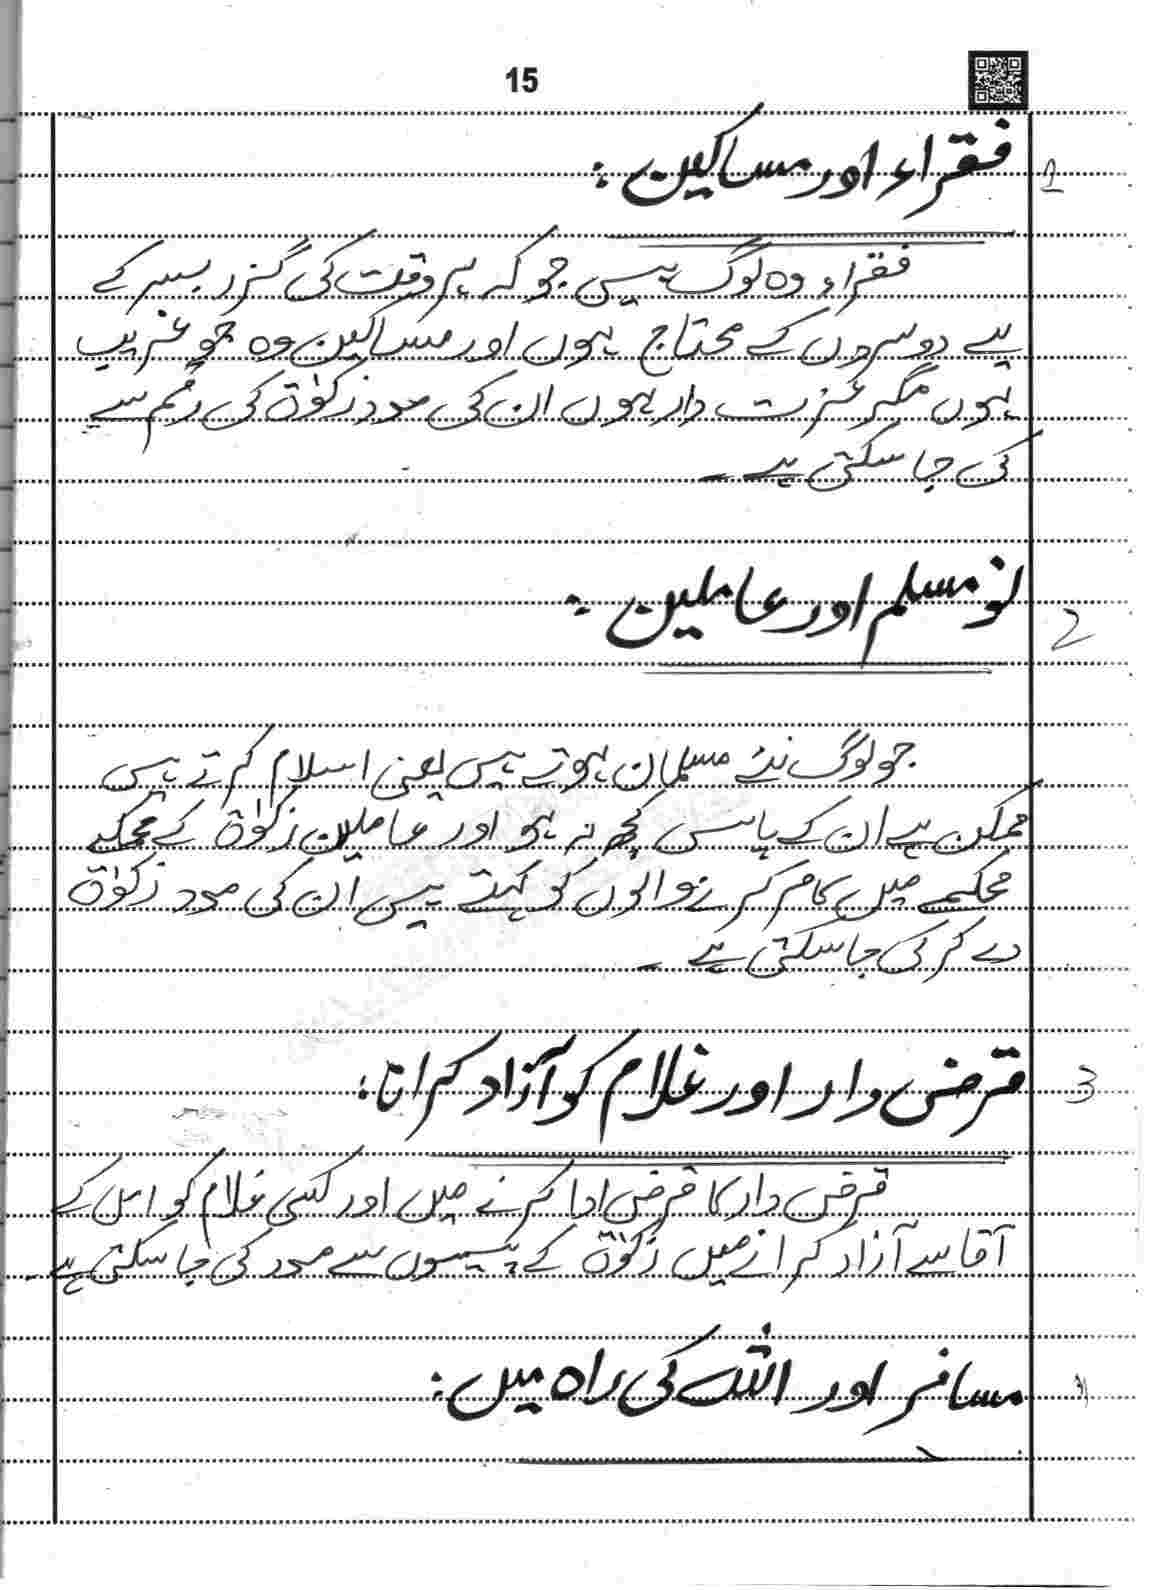 15
1 فقراء اور مساکین:
فقراء وہ لوگ ہیں جو کہ ہر وقت کی گزر بسر کے
لیے دوسروں کے محتاج ہوں اور مساکین وہ جو غریب
ہوں مگر عزت دار ہوں ان کی مدد زکوٰۃ کی رقم سے
کی جا سکتی ہے۔
2 نو مسلم اور عاملین:
جو لوگ نئے مسلمان ہوتے ہیں یعنی اسلام کرتے ہیں
ممکن ہے ان کے پاس کچھ نہ ہو اور عاملین زکوٰۃ کے محکمہ
محکمے میں کام کرنے والوں کو کہتے ہیں ان کی مدد زکوٰۃ
دے کر کی جا سکتی ہے۔
3 قرض دار اور غلام کو آزاد کرانا:
قرض دار کا قرض ادا کرنے میں اور کسی غلام کو اس کے
آقا سے آزاد کرانے میں زکوٰۃ کے پیسوں سے مدد کی جا سکتی ہے۔
مسافر اور اللہ کی راہ میں: